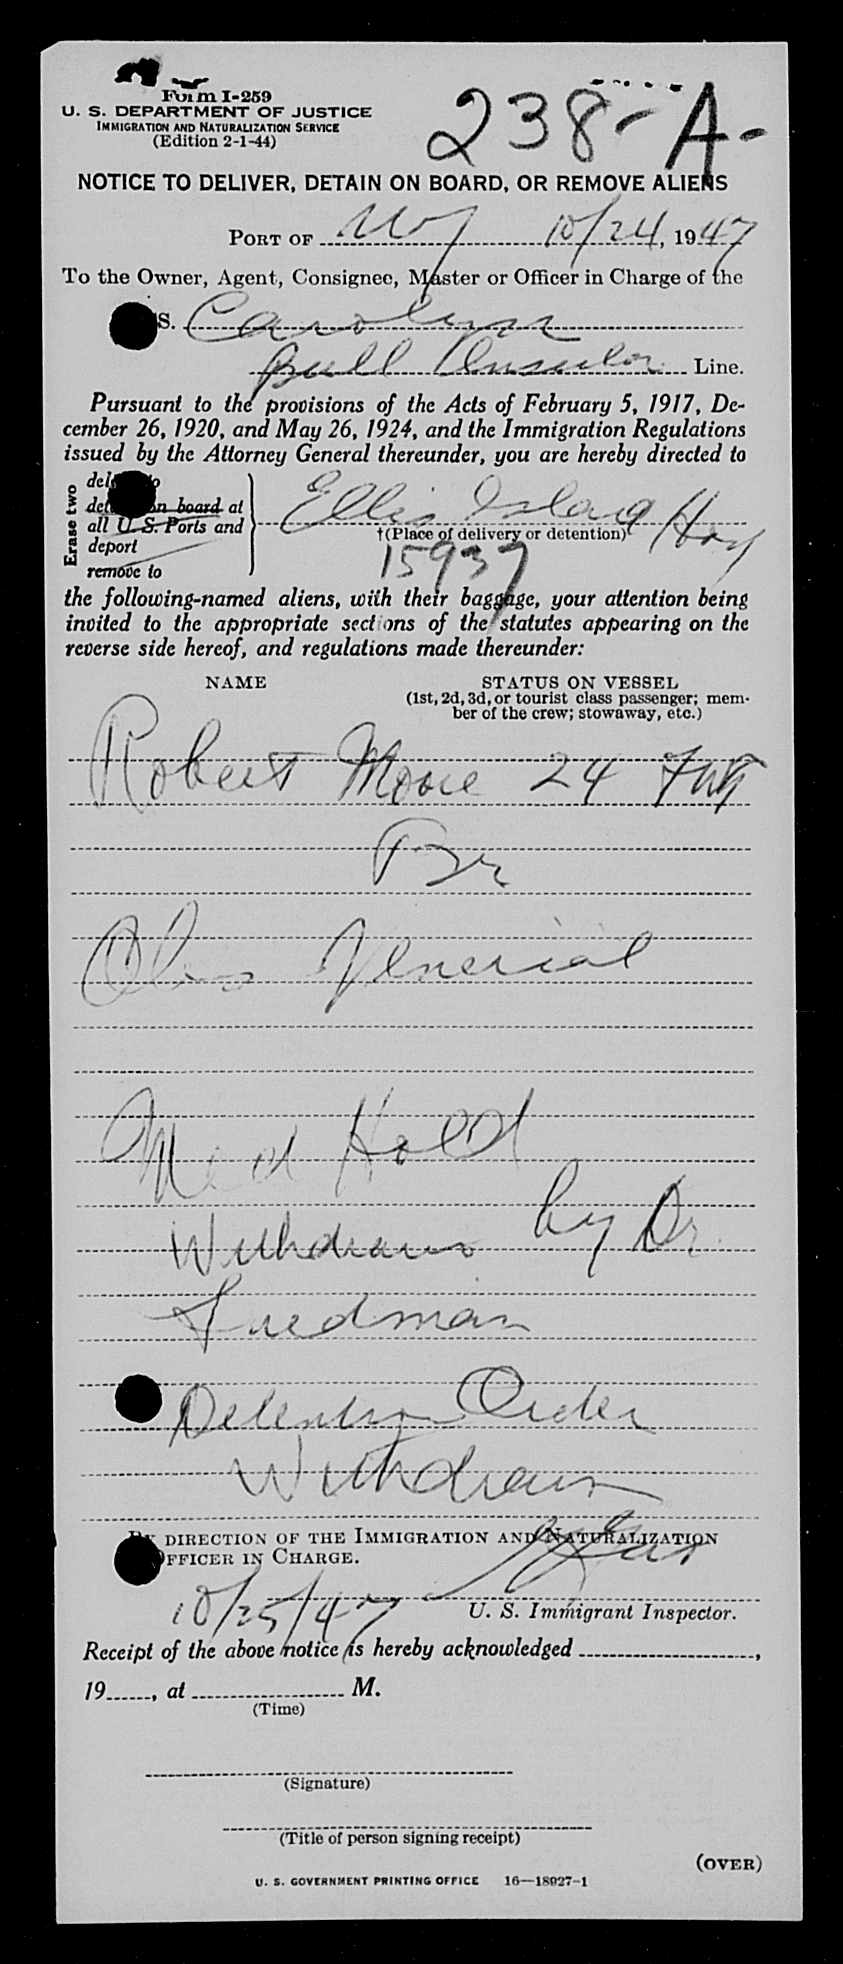 Form I-259
U. S. DEPARTMENT OF JUSTICE
IMMIGRATION AND NATURALIZATION SERVICE
(Edition 2-1-44)
238-A-
NOTICE TO DELIVER, DETAIN ON BOARD, OR REMOVE ALIENS
PORT OF NY 10/24, 1947
To the Owner, Agent, Consignee, Master or Officer in Charge of the
S. Carolyn
Bull Insular Line.
Pursuant to the provisions of the Acts of February 5, 1917, De-
cember 26, 1920, and May 26, 1924, and the Immigration Regulations
issued by the Attorney General thereunder, you are hereby directed to
Erase two
on board at
all U. S. Ports and
deport
remove to
Ellis Island Hosp
†(Place of delivery or detention)
15937
the following-named aliens, with their baggage, your attention being
invited to the appropriate sections of the statutes appearing on the
reverse side hereof, and regulations made thereunder:
NAME STATUS ON VESSEL
(1st, 2d, 3d, or tourist class passenger; mem-
ber of the crew; stowaway, etc.)
Robert Moore 24
Br
Obs Venereal
Med Hold
Withdrawn by Dr.
Friedman
Detention Order
Withdrawn
BY DIRECTION OF THE IMMIGRATION AND NATURALIZATION
OFFICER IN CHARGE.
10/25/47
U. S. Immigrant Inspector.
Receipt of the above notice is hereby acknowledged ,
19 , at M.
(Time)
(Signature)
(Title of person signing receipt)
(OVER)
U. S. GOVERNMENT PRINTING OFFICE 16—18927-1